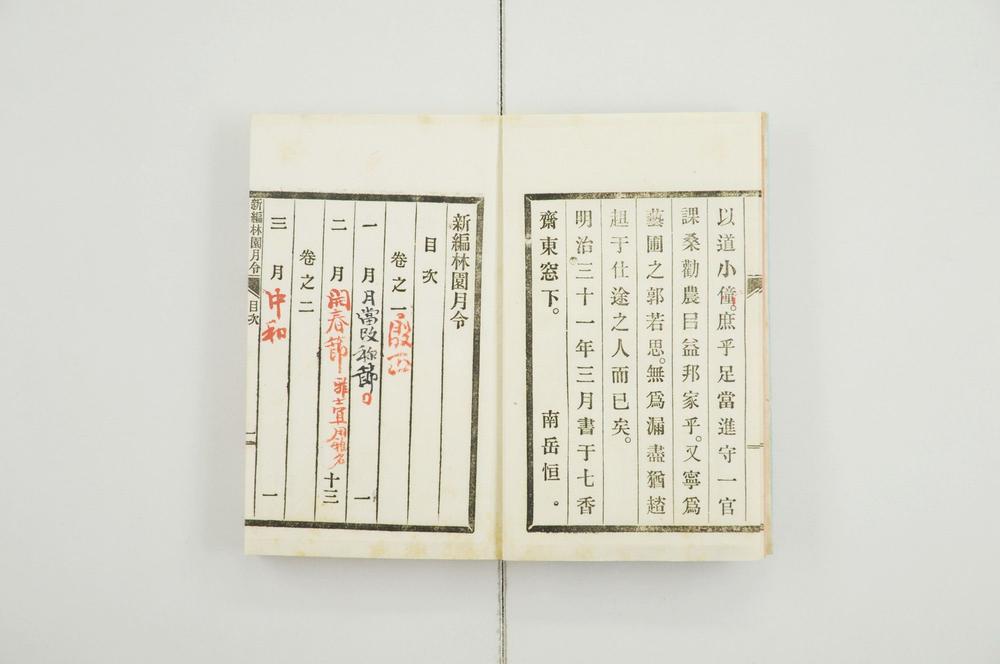 以道小僮。庶乎足當進守一官
課桑勸農㠯益邦家乎。又寧爲
藝圃之郭若思。無爲漏盡猶趦
趄于仕途之人而已矣。
明治三十一年三月書于七香
齋東窓下。 南岳恒。
新編林園月令
目次
卷之一
一月 月當改称節 一
二月 開春節 雅士宜用雅名 十三
卷之二
三月 中和 一
新編林園月令 目次 一